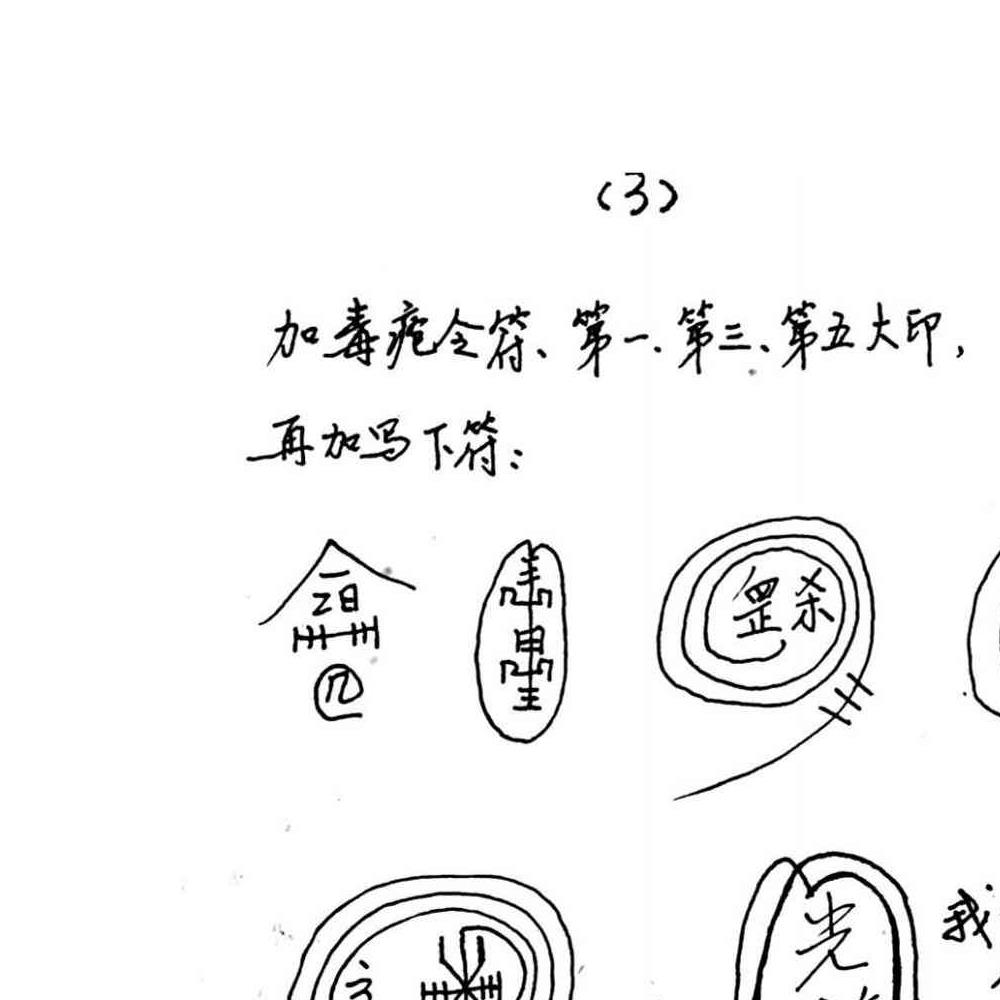 (3)
加毒疮令符、第一、第三、第五大印，
再加写下符：
罡杀
光
我